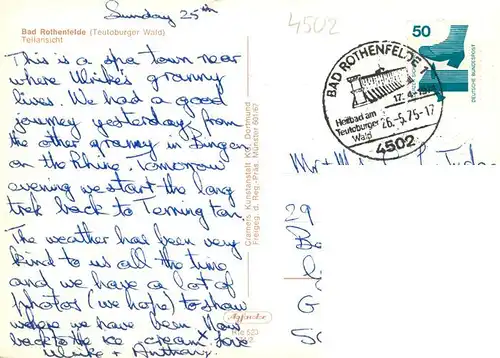 Sunday 25th
Bad Rothenfelde (Teutoburger Wald)
Teilansicht
This is a spa town near
where Ulrike's granny
lives. We had a good
journey yesterday from
the other granny in Bingen
on the Rhine. Tomorrow
evening we start the long
trek back to
The weather has been very
kind to us all the time
and we have a lot of
photos (we hope) to show
where we have been. Now
back to the ice cream! Love
Ulrike + Anthony
Cramers Kunstanstalt KG, Dortmund
Freigeg. d. Reg.-Präs. Münster
4502
50
DEUTSCHE BUNDESPOST
BAD ROTHENFELDE
Heilbad am
Teutoburger
Wald
26.-5.75-17
4502
Mr + M
29
B
G
S